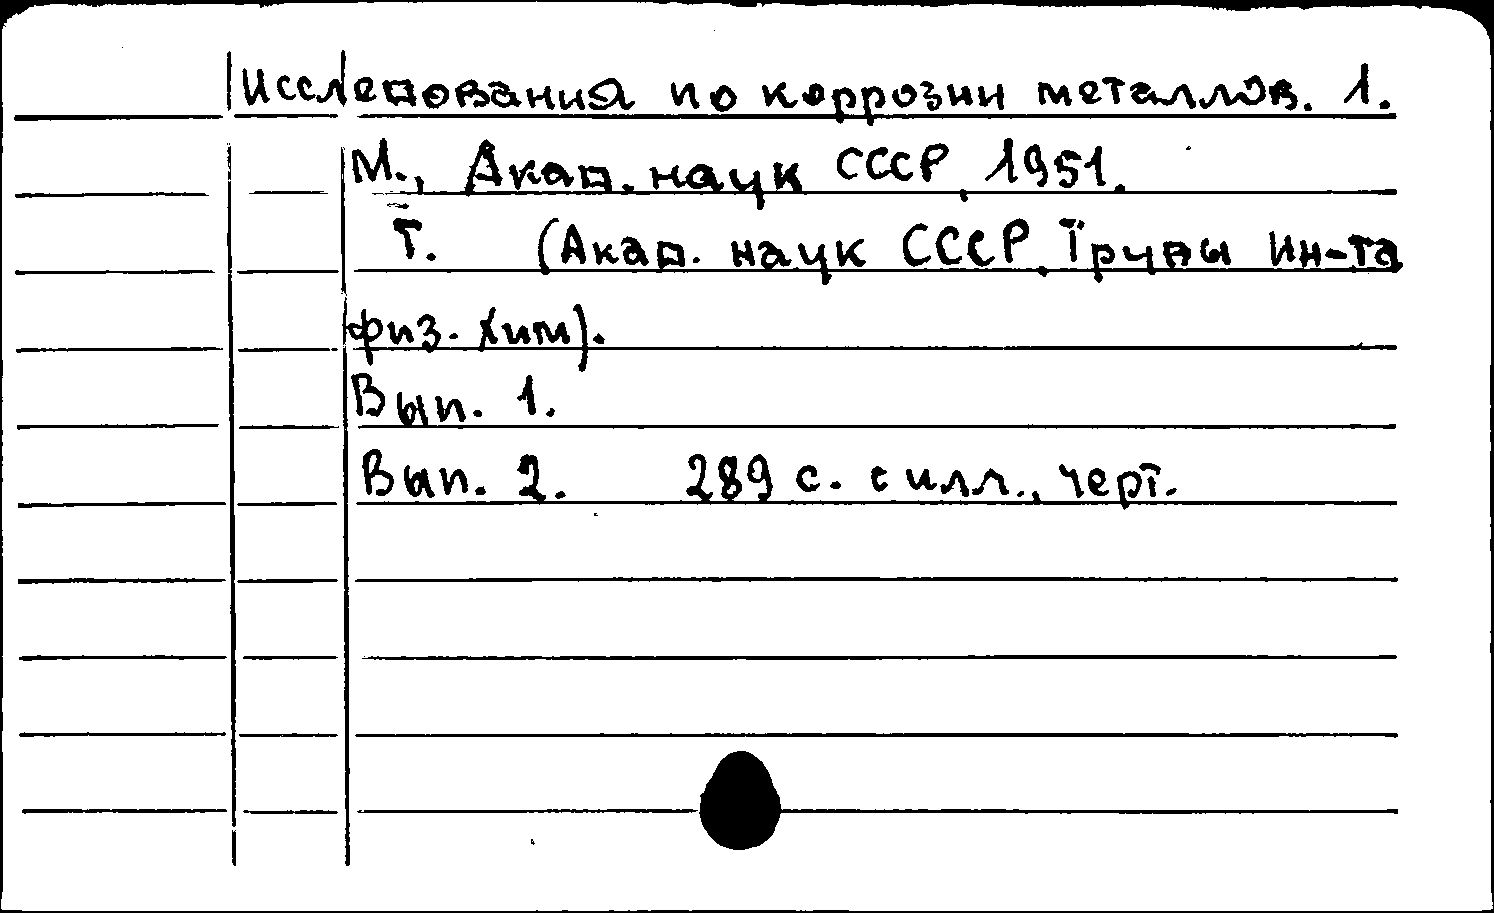 Исследования по коррозии металлов. 1.
М., Акад. наук СССР, 1951.
Т. (Акад. наук СССР, Труды Ин-та
физ. хим).
Вып. 1.
Вып. 2. 289 с. с илл., черт.